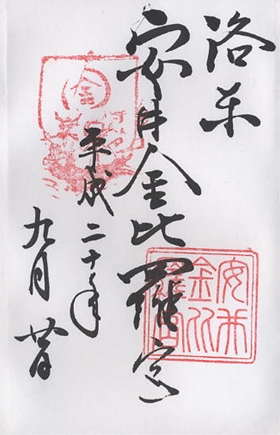 洛东
安井金比羅宮
平成二十年
九月廿日
金
安井
金比
羅宮